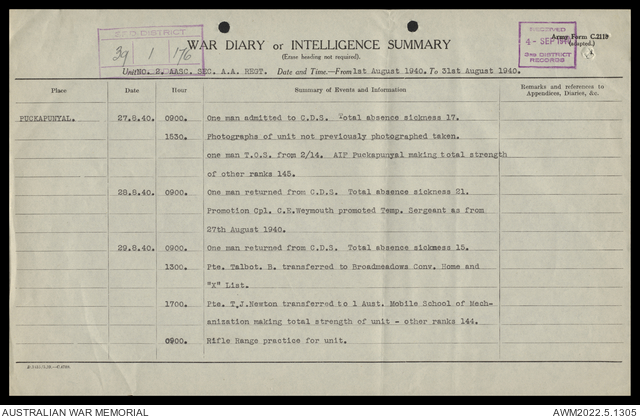 3RD DISTRICT
39 1 176
RECEIVED
4 - SEP 1940
3RD DISTRICT
RECORDS
Army Form C.2118
(adapted.)
WAR DIARY or INTELLIGENCE SUMMARY
(Erase heading not required).
Unit NO. 2. AASC. SEC. A.A. REGT. Date and Time.—From 1st August 1940. To 31st August 1940.
Place Date Hour Summary of Events and Information Remarks and references to Appendices, Diaries, &c.
PUCKAPUNYAL. 27.8.40. 0900. One man admitted to C.D.S. Total absence sickness 17.
1530. Photographs of unit not previously photographed taken.
one man T.O.S. from 2/14. AIF Puckapunyal making total strength
of other ranks 145.
28.8.40. 0900. One man returned from C.D.S. Total absence sickness 21.
Promotion Cpl. C.E.Weymouth promoted Temp. Sergeant as from
27th August 1940.
29.8.40. 0900. One man returned from C.D.S. Total absence sickness 15.
1300. Pte. Talbot. B. transferred to Broadmeadows Conv. Home and
"X" List.
1700. Pte. T.J.Newton transferred to 1 Aust. Mobile School of Mech-
anization making total strength of unit - other ranks 144.
0900. Rifle Range practice for unit.
AUSTRALIAN WAR MEMORIAL
AWM2022.5.1305